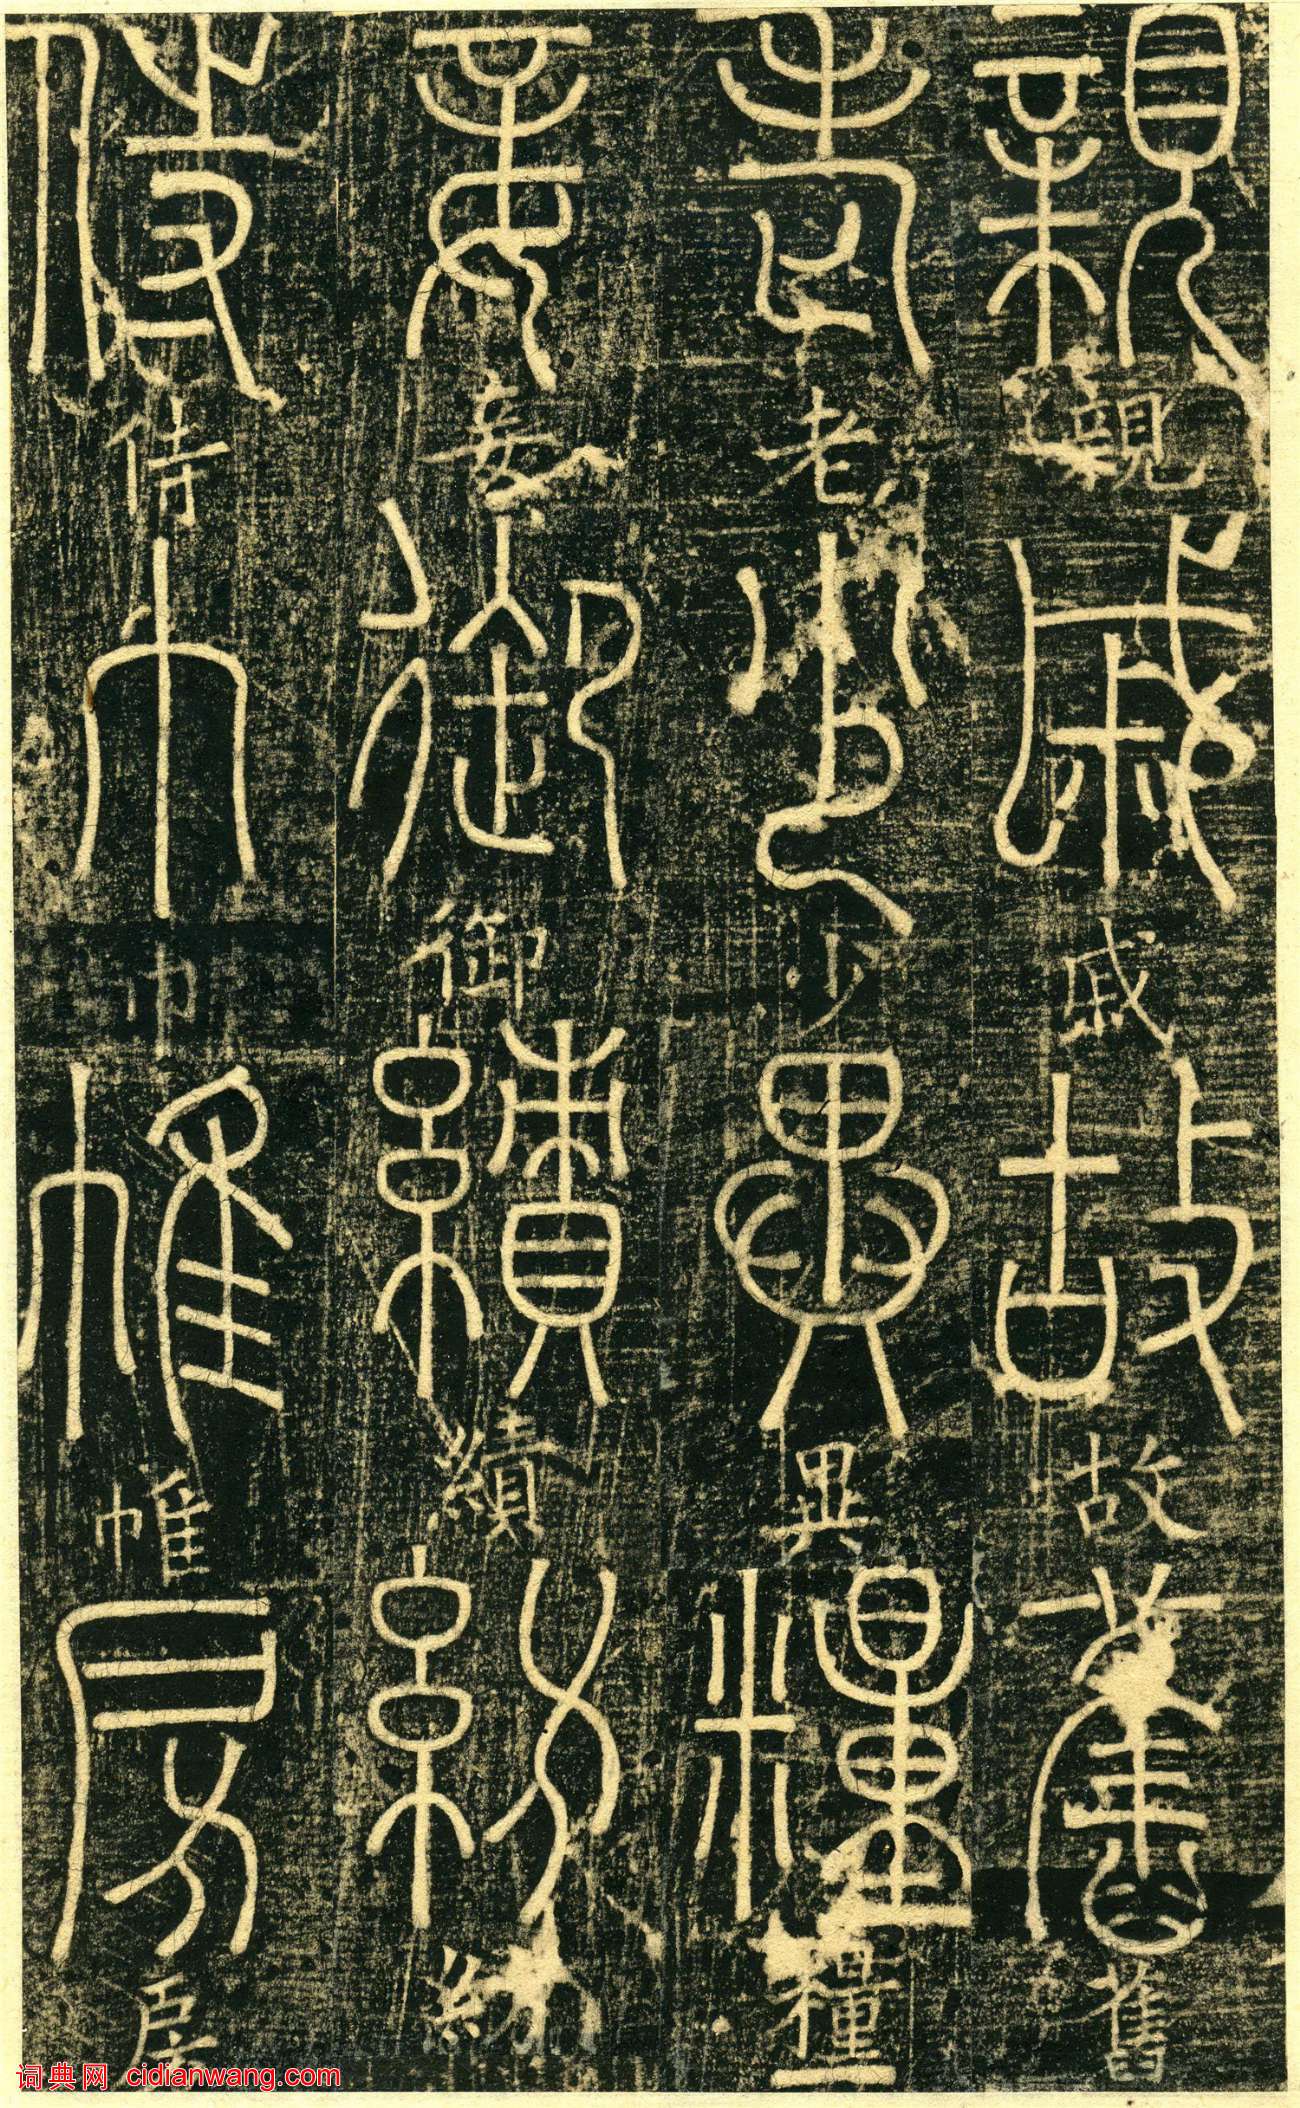 親戚故舊
老少異糧
妾御績紡
侍巾帷房
词典网 cidianwang.com